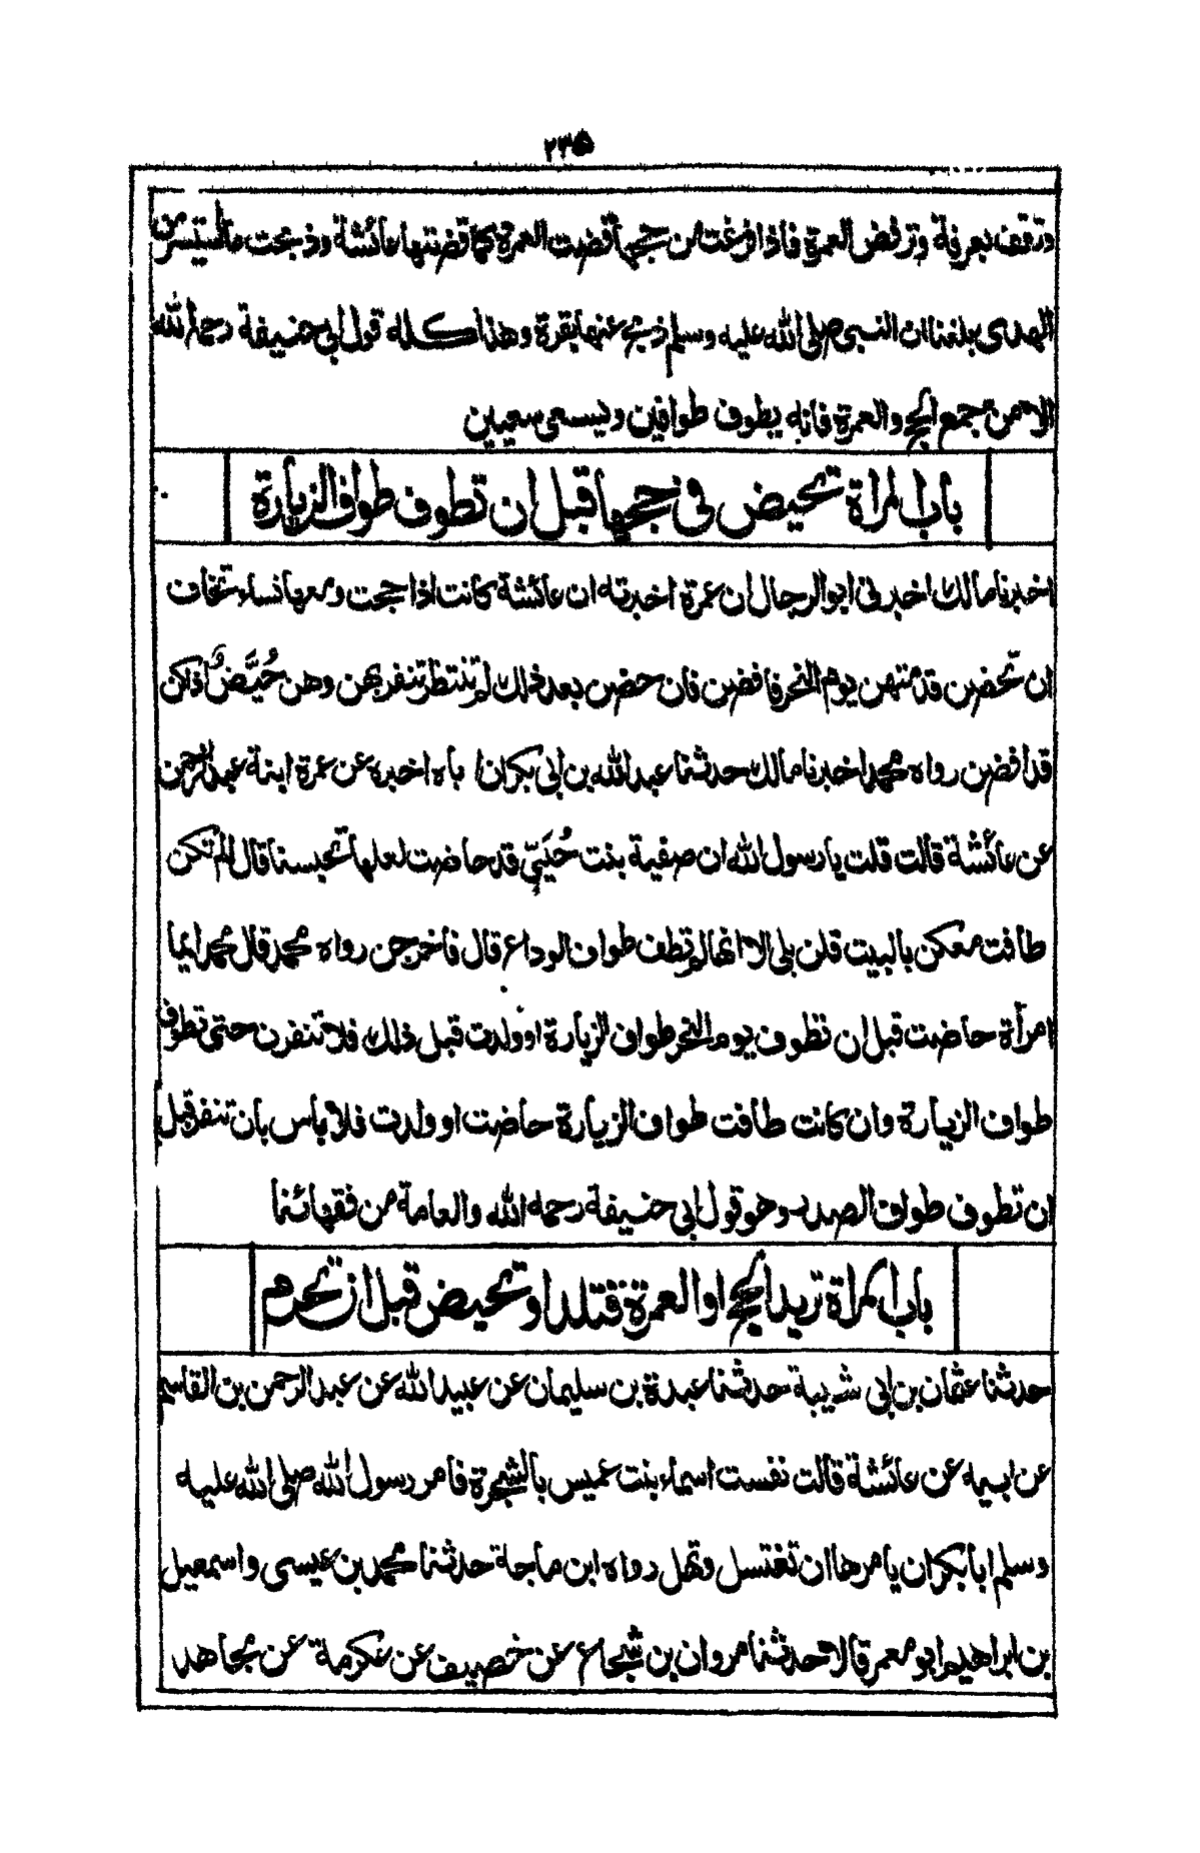 ٢٣٥
وتقف بعرفة وترفض العمرة فاذا فرغت من حجها قضت العمرة كما قضتها عائشة وذبحت ما استيسر من
الهدى بلغنا ان النبى صلى الله عليه وسلم ذبح عنها بقرة وهذا كله قول ابى حنيفة رحمه الله
الا من جمع الحج والعمرة فانه يطوف طوافين ويسعى سعيين
باب المرأة تحيض فى حجها قبل ان تطوف طواف الزيارة
اخبرنا مالك اخبرنى ابو الرجال ان عمرة اخبرته ان عائشة كانت اذا حجت ومعها نساء تخاف
ان تحضن قدمتهن يوم النحر فافضن فان حضن بعد ذلك لم تنتظر تنفر بهن وهن حُيَّضٌ اذا كن
قد افضن رواه محمد اخبرنا مالك حدثنا عبد الله بن ابى بكر ان اباه اخبره عن عمرة ابنة عبد الرحمن
عن عائشة قالت قلت يا رسول الله ان صفية بنت حُيَيّ قد حاضت لعلها تحبسنا قال الم تكن
طافت معكن بالبيت قلن بلى الا انها لم تطف طواف الوداع قال فاخرجن رواه محمد قال محمد ايما
امرأة حاضت قبل ان تطوف يوم النحر طواف الزيارة او ولدت قبل ذلك فلا تنفرن حتى تطوف
طواف الزيارة وان كانت طافت طواف الزيارة حاضت او ولدت فلا باس بان تنفر قبل
ان تطوف طواف الصدر وهو قول ابى حنيفة رحمه الله والعامة من فقهائنا
باب المرأة تريد الحج او العمرة فتلد او تحيض قبل ان تحرم
حدثنا عثمان بن ابى شيبة حدثنا عبدة بن سليمان عن عبيد الله عن عبد الرحمن بن القاسم
عن ابيه عن عائشة قالت نفست اسماء بنت عميس بالشجرة فامر رسول الله صلى الله عليه
وسلم ابا بكر ان يامرها ان تغتسل وتهل رواه ابن ماجة حدثنا محمد بن عيسى واسمعيل
بن ابراهيم ابو معمر قالا حدثنا مروان بن شجاع عن خصيف عن عكرمة عن مجاهد